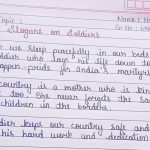 Topic :
Name : N
Slogans on Soldiers
Gr No. :
we sleep peacefully in our beds
soldier who lays his life down to
happen pride for India's martyrs
country is a mother who is kind
too. She never forgets the sac
children in the borders.
soldier keeps our country safe and
his hard work and dedication